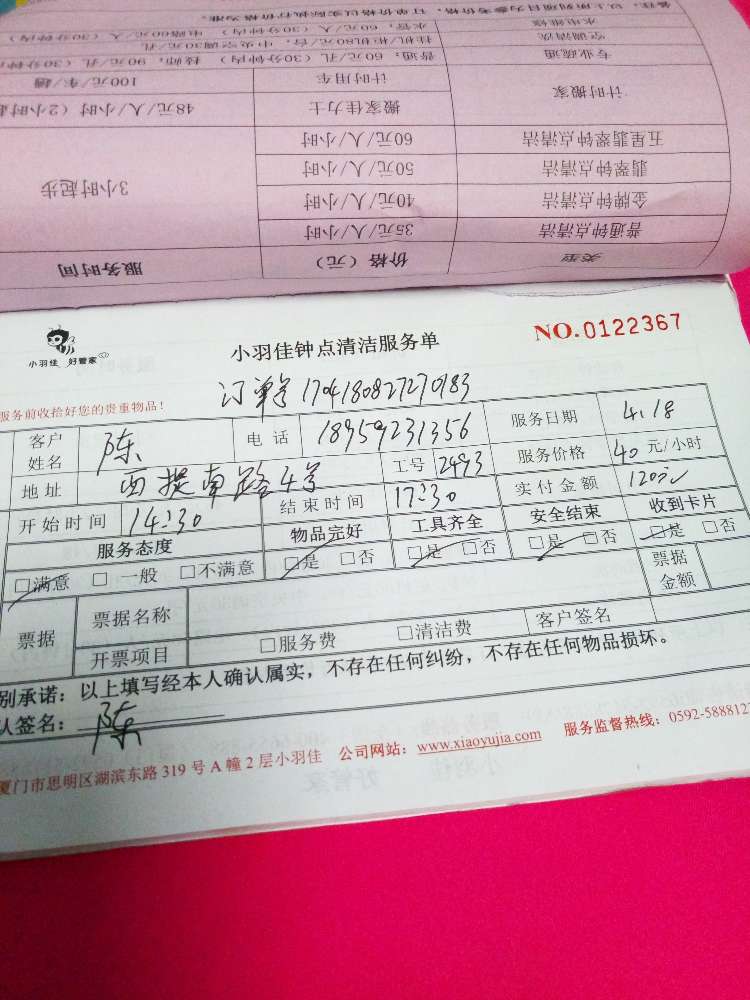 备注：以上所列项目为参考价格，订单价格以实际执行价格为准。
水电维修 水管，60元/人（30分钟内） 电路60元/人（30分钟内）
空调清洗 挂机/柜机80元/台，中央空调30元/孔
专业疏通 普通，60元/孔（30分钟内） 技师，90元/孔（30分钟内）
计时搬家 计时用车 100元/车/趟
搬家佳力士 48元/人/小时（2小时起
五星翡翠钟点清洁 60元/人/小时
翡翠钟点清洁 50元/人/小时
金牌钟点清洁 40元/人/小时
3小时起步
普通钟点清洁 35元/人/小时
类型 价格（元） 服务时间
小羽佳 好管家
小羽佳钟点清洁服务单 NO.0122367
订单号 1704180827270183
服务前收拾好您的贵重物品！
客户姓名 陈 电话 18959231356 服务日期 4.18
地址 西堤南路4号 工号 2493 服务价格 40 元/小时
开始时间 14:30 结束时间 17:30 实付金额 120元
服务态度 物品完好 工具齐全 安全结束 收到卡片
□满意 □一般 □不满意 □是 □否 □是 □否 □是 □否 □是 □否
票据 票据名称 票据金额
开票项目 □服务费 □清洁费 客户签名
别承诺：以上填写经本人确认属实，不存在任何纠纷，不存在任何物品损坏。
认签名：陈
厦门市思明区湖滨东路319号A幢2层小羽佳 公司网站：www.xiaoyujia.com 服务监督热线：0592-588812